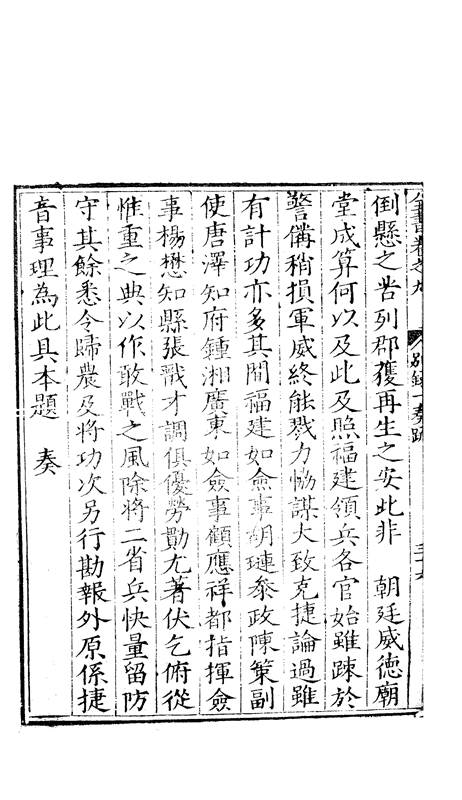 全書卷之九 別錄一奏疏
倒懸之苦列郡獲再生之安此非 朝廷威德廟
堂成算何以及此及照福建領兵各官始雖踈於
警備稍損軍威終能戮力恊謀大致克捷論過雖
有計功亦多其間福建如僉事胡璉叅政陳策副
使唐澤知府鍾湘廣東如僉事顧應祥都指揮僉
事楊懋知縣張戩才調俱優勞勩尤著伏乞俯從
惟重之典以作敢戰之風除將二省兵快量留防
守其餘悉令歸農及將功次另行勘報外原係捷
音事理為此具本題 奏